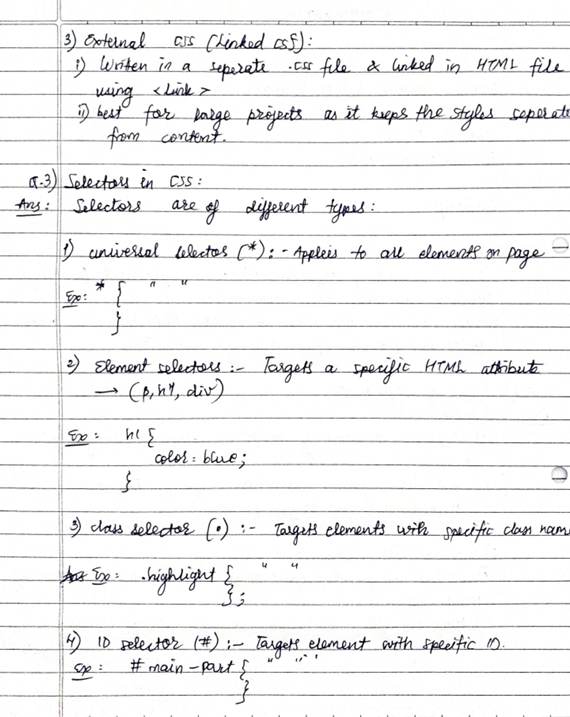 3) External CSS (Linked CSS):
i) Writen in a seperate .css file & linked in HTML file
using <Link>
ii) best for large projects as it keeps the styles seperate
from content.
Q.3) Selectors in CSS:
Ans: Selectors are of different types:
1) universal selector (*): - Appleis to all elements on page
Ex: * { " "
}
2) Element selectors :- Targets a specific HTML attribute
→ (p, h1, div)
Ex: h1 {
color: blue;
}
3) class selector (.) :- Targets elements with specific class name
Ex: .highlight { " "
};
4) ID selector (#) :- Targets element with specific ID.
Ex: #main-part { " "
}